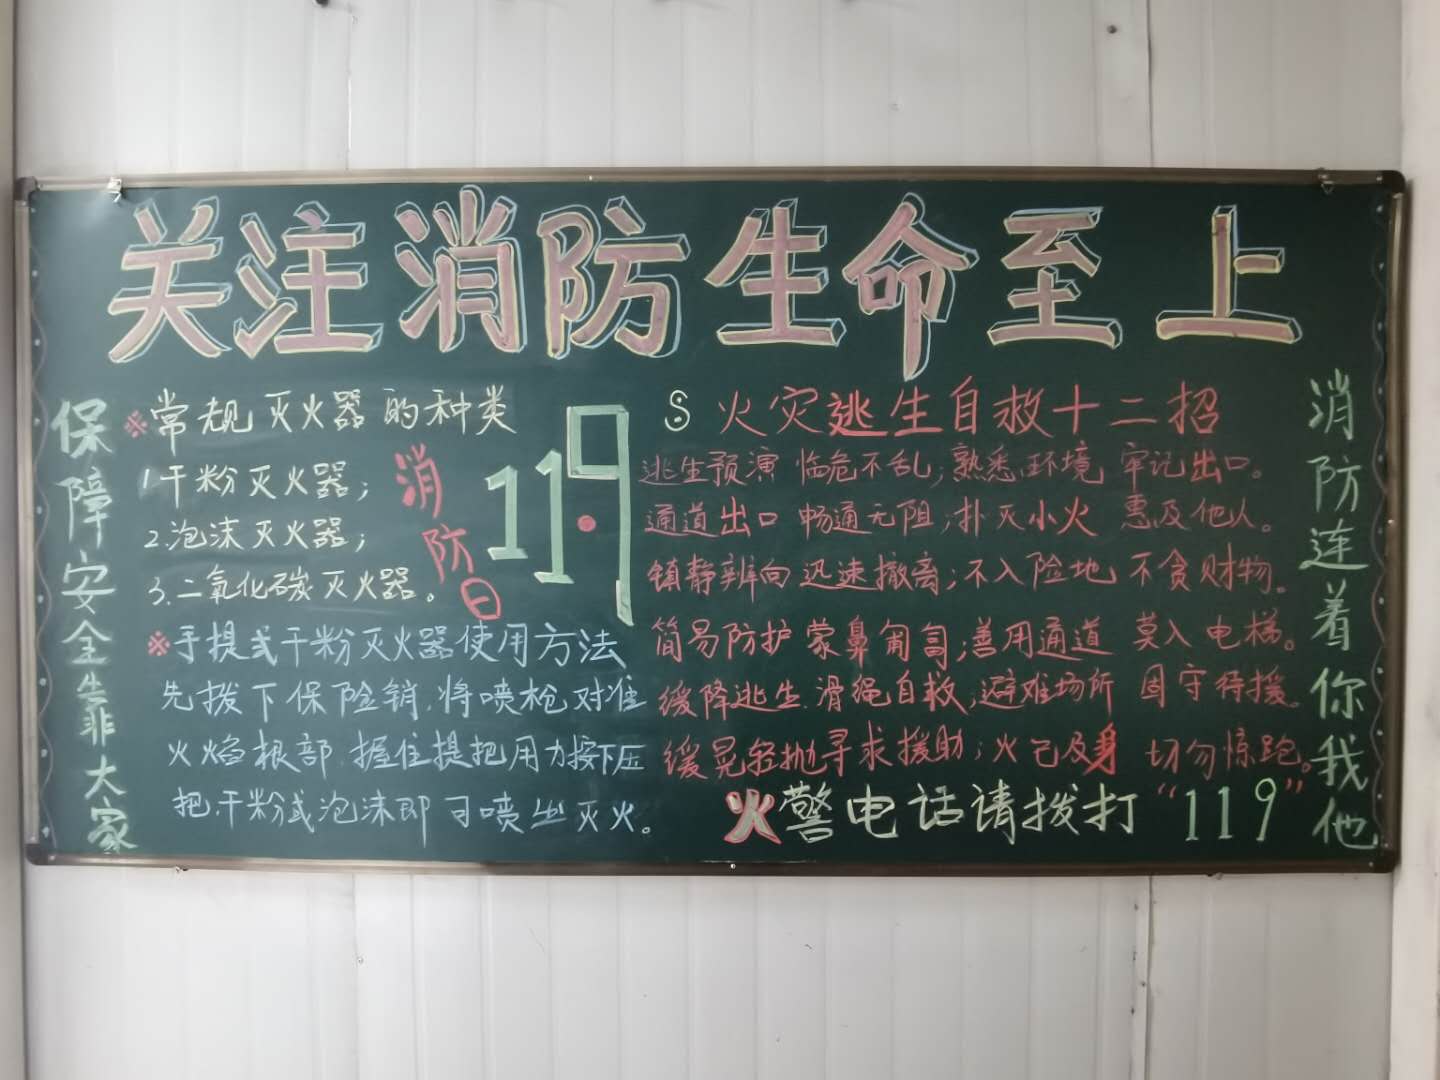 关注消防生命至上
保障安全靠大家
※常规灭火器的种类
1.干粉灭火器；
2.泡沫灭火器；
3.二氧化碳灭火器。
消防日
11.9
※手提式干粉灭火器使用方法
先拨下保险销.将喷枪对准
火焰根部.握住提把用力按下压
把.干粉或泡沫即可喷出灭火。
火灾逃生自救十二招
逃生预演 临危不乱;熟悉环境 牢记出口。
通道出口 畅通无阻;扑灭小火 惠及他人。
镇静辨向 迅速撤离;不入险地 不贪财物。
简易防护 蒙鼻匍匐;善用通道 莫入电梯。
缓降逃生.滑绳自救;避难场所 固守待援。
缓晃轻抛寻求援助;火已及身 切勿惊跑。
火警电话请拨打“119”
消防连着你我他